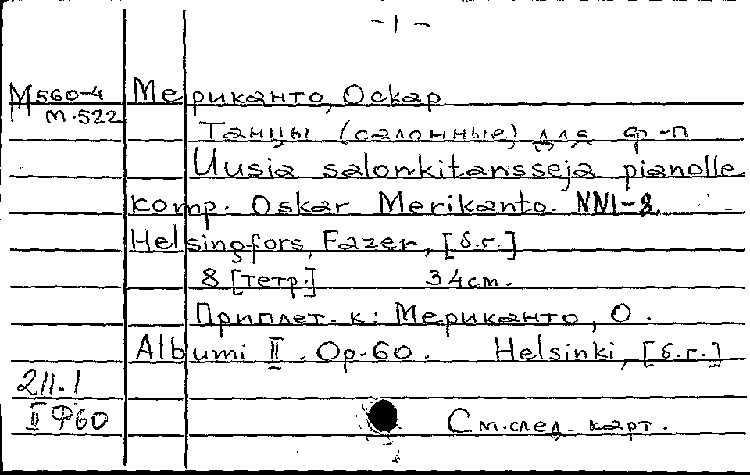 - 1 -
М560-4 Мериканто, Оскар
м.522
Танцы (салонные) для ф-п
Uusia salonkitansseja pianolle
komp. Oskar Merikanto. NN1-8.
Helsingfors, Fazer, [б.г.]
8 [тетр.] 34см.
Приплет. к: Мериканто, О.
Albumi II. Op.60. Helsinki, [б.г.]
211.1
II Ф60 См.след. карт.